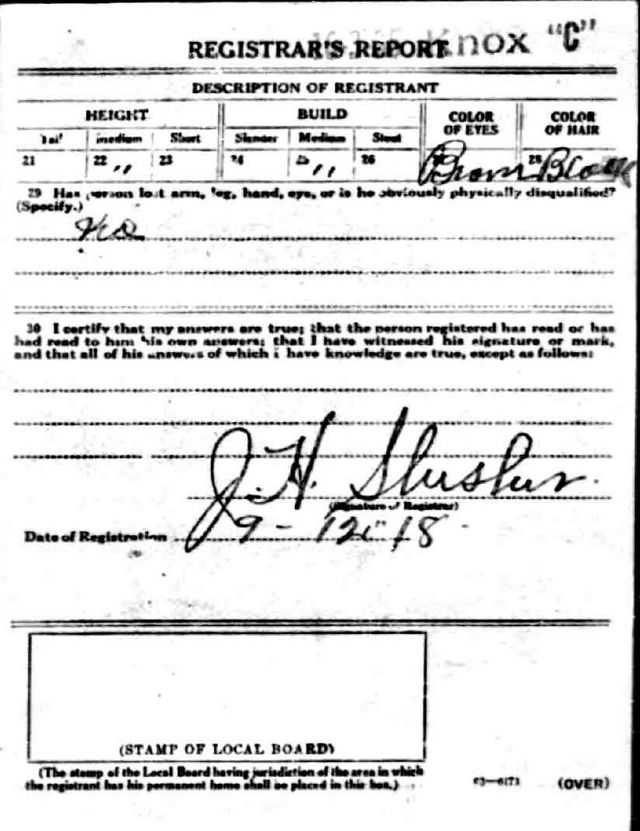 Knox "C"
REGISTRAR'S REPORT
DESCRIPTION OF REGISTRANT
HEIGHT BUILD COLOR OF EYES COLOR OF HAIR
Tall medium Short Slender Medium Stout
21 22 " 23 24 25 " 26 Brown 28 Black
29 Has person lost arm, leg, hand, eye, or is he obviously physically disqualified?
(Specify.)
No
30 I certify that my answers are true; that the person registered has read or has
had read to him his own answers; that I have witnessed his signature or mark,
and that all of his answers of which I have knowledge are true, except as follows:
J. H. Slusher
(Signature of Registrar)
Date of Registration 9 - 12 - 18
(STAMP OF LOCAL BOARD)
(The stamp of the Local Board having jurisdiction of the area in which
the registrant has his permanent home shall be placed in this box.)
03—6171 (OVER)